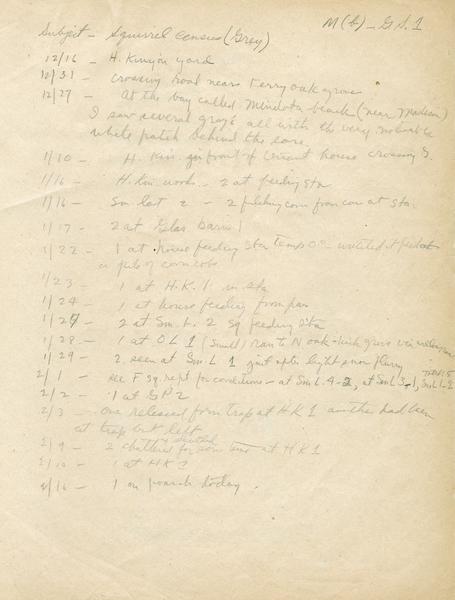 M(b)-GS.1
Subject - Squirrel Census (Grey)
12/16 - H. Kinyon yard
12/31 - crossing road near Terry oak grove
12/27 - At the bay called Mendota beach (near Madison)
I saw several grays all with the very noticeable
white patch behind the ears.
1/10 - H. Kin. in front of house crossing S.
1/16 - H. Kin woods - 2 at feeding sta
1/16 - Sm. lot 2 - 2 from can at sta.
1/17 - 2 at Glas barn 1
1/22 - 1 at house feeding sta temp 0°
on pile of corn cobs
1/23 - 1 at H.K. 1. in sta
1/24 - 1 at house feeding from pan
1/27 - 2 at Sm. L. 2 sq feeding sta
1/28 - 1 at OL 1 (small) ran to N oak -
1/29 - 2 seen at Sm. L 1 just after light snow flurry
2/1 - see F sq. rept for conditions - at Sm. L. 4-2, at Sm L 3-1, Sm. L 1-2
2/2 - 1 at GP2
2/3 - one released form trap at HK1 another had been
at trap but left
2/9 - 2 chattered & scolded for some time at HK1
2/10 - 1 at HK
2/16 - 1 on porch today.